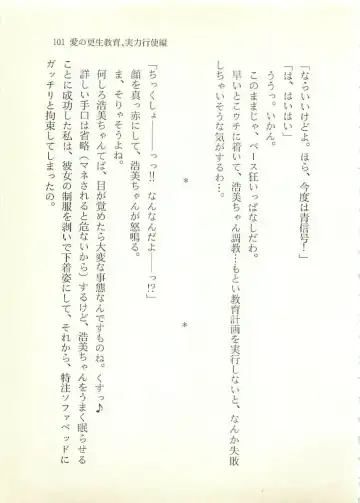 101 愛の更生教育、実力行使編
「ならいいけどよ。ほら、今度は青信号！」
「は、はいはい」
ううっ。いかん。
このままじゃ、ペース狂いっぱなしだわ。
早いとこウチに着いて、浩美ちゃん調教…もとい教育計画を実行しないと、なんか失敗
しちゃいそうな気がするわ…。
＊　＊
「ちっくしょ――――っっ!!　なんなんだよ――っ!?」
顔を真っ赤にして、浩美ちゃんが怒鳴る。
ま、そりゃそうよね。
何しろ浩美ちゃんてば、目が覚めたら大変な事態なんですものね。くすっ♪
詳しい手口は省略（マネされると危ないから）するけど、浩美ちゃんをうまく眠らせる
ことに成功した私は、彼女の制服を剥いで下着姿にして、それから、特注ソファベッドに
ガッチリと拘束してしまったの。